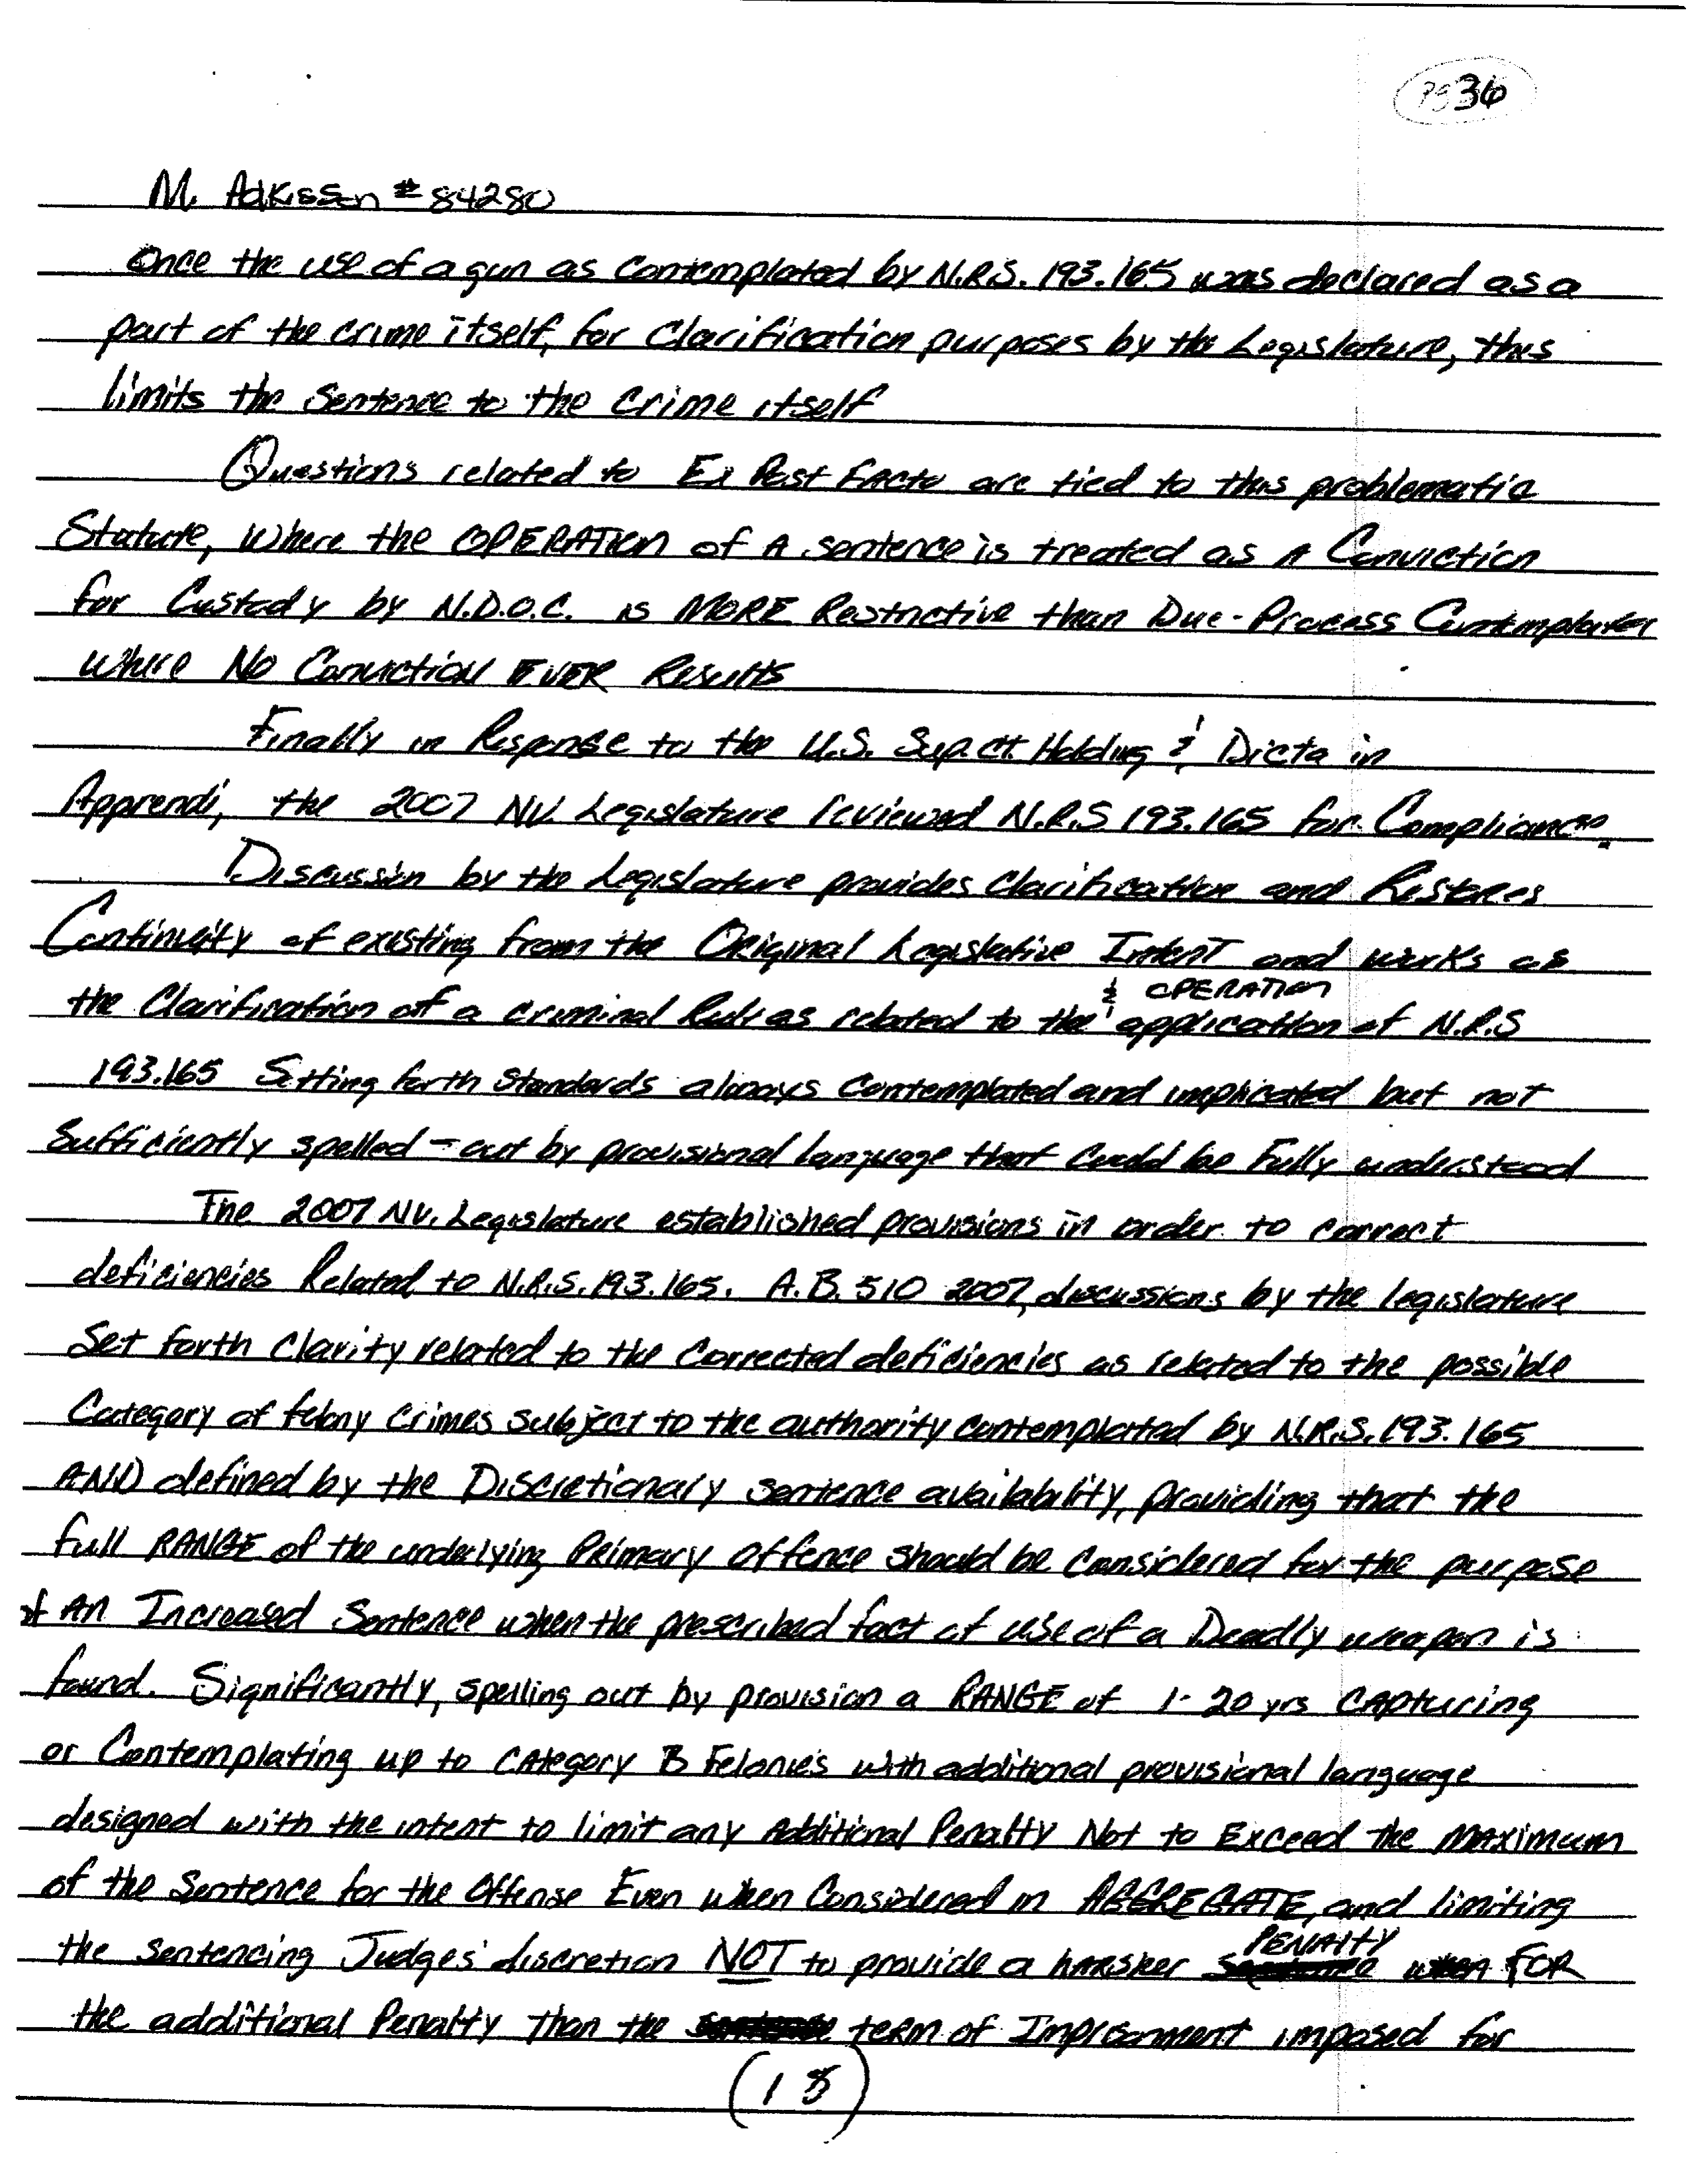 Pg 36
M. Adkisson # 84280
Once the use of a gun as contemplated by N.R.S. 193.165 was declared as a
part of the crime itself, for Clarification purposes by the Legislature, this
limits the Sentence to the crime itself
Questions related to Ex Post Facto are tied to this problematic
Statute, where the OPERATION of A sentence is treated as A Conviction
for Custody by N.D.O.C. is MORE Restrictive than Due-Process Contemplates
where No Conviction EVER Results
Finally in Response to the U.S. Sup. Ct. Holding & Dicta in
Apprendi, the 2007 NV. Legislature reviewed N.R.S 193.165 for Compliance.
Discussion by the Legislature provides Clarification and Restores
Continuity of existing from the Original Legislative Intent and works as
the Clarification of a criminal Rule as related to the application of N.R.S
& OPERATION
193.165 Setting forth Standards always Contemplated and implicated but not
Sufficiently spelled-out by provisional language that could be Fully understood
The 2007 NV. Legislature established provisions in order to correct
deficiencies Related to N.R.S. 193.165. A.B. 510 2007, discussions by the legislature
Set forth Clarity related to the Corrected deficiencies as related to the possible
Category of felony Crimes subject to the authority contemplated by N.R.S. 193.165
AND defined by the Discretionary sentence availability, providing that the
full RANGE of the underlying Primary Offence should be Considered for the purpose
of An Increased Sentence when the prescribed fact of use of a Deadly weapon is
found. Significantly, spelling out by provision a RANGE of 1-20 yrs CAPturing
or Contemplating up to CAtegory B Felonies with additional provisional language
designed with the intent to limit any Additional Penalty Not to Exceed the MAXimum
of the Sentence for the Offense Even when Considered in AGGREGATE, and limiting
the sentencing Judges' discretion NOT to provide a harsher PENALTY when FOR
the additional Penalty than the term of Imprisonment imposed for
(18)